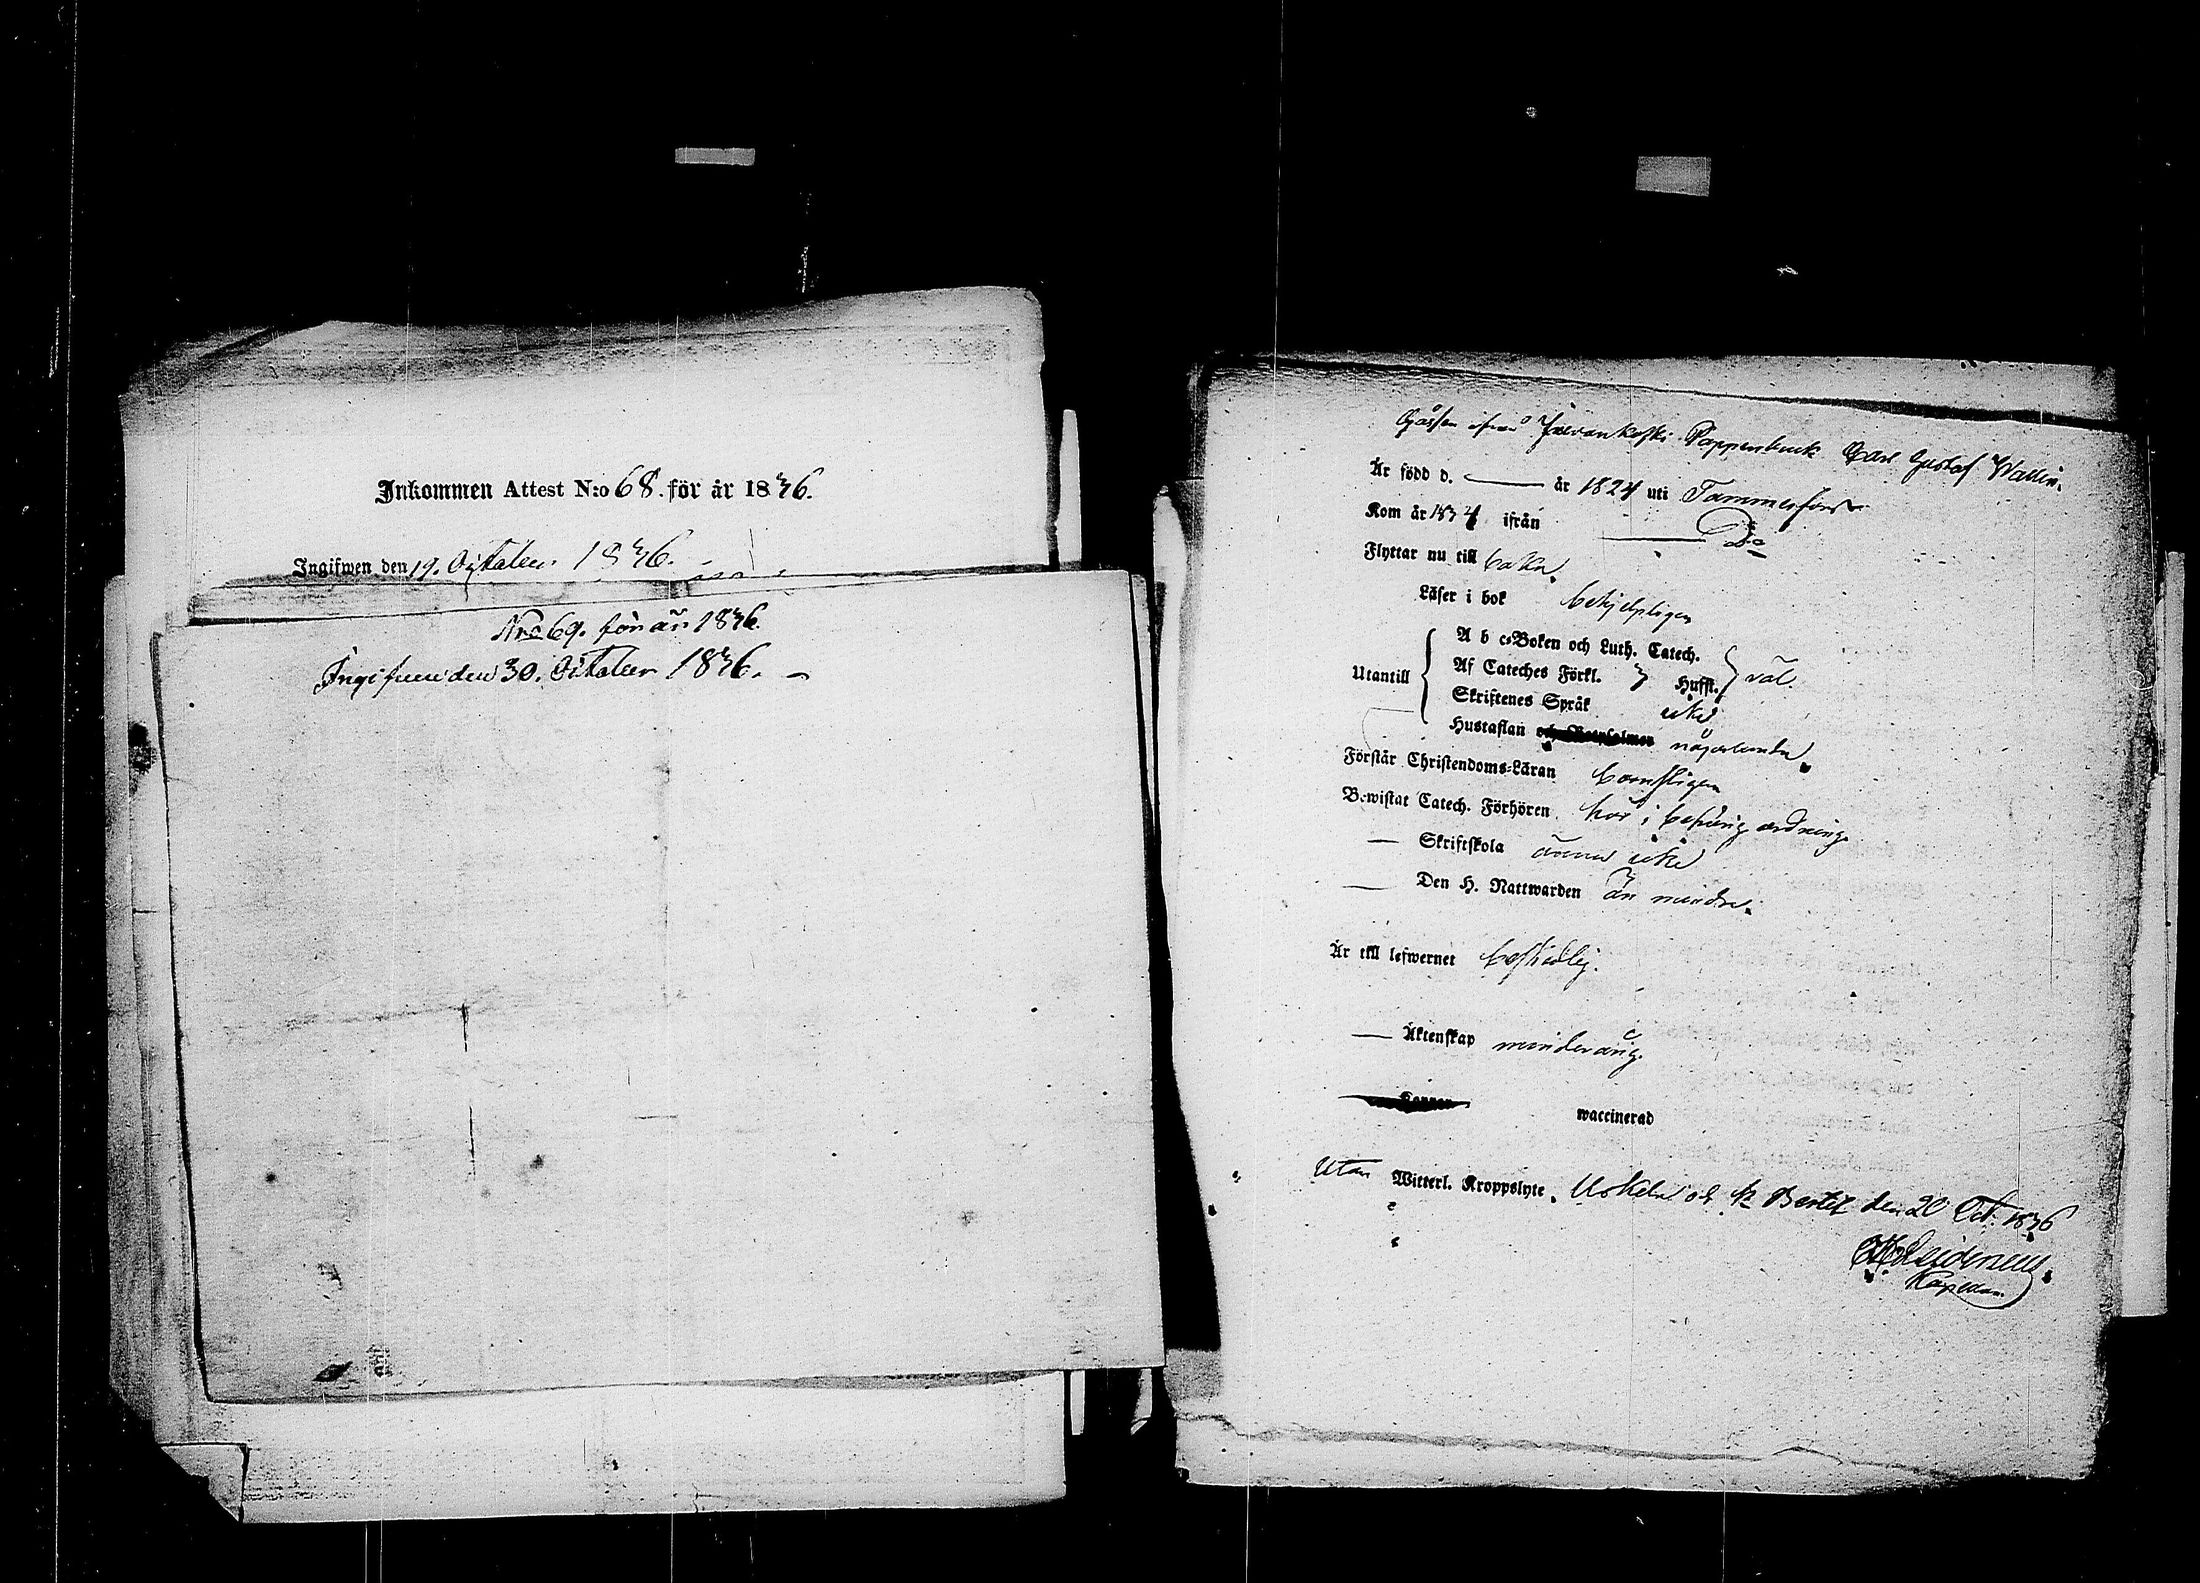 Inkommen Attest N:o 68. för år 1836.
Ingifwen den 19. October 1836.
Nro 69. för år 1836.
Ingifven den 30. October 1836. –
Gossen ifrån Juvankoski Pappersbruk Carl Gustaf Wallin.
Är född d. — år 1824 uti Tammerfors
Kom år 1834 ifrån — D:o
Flyttar nu till
Läser i bok behjelpligen
A b c-Boken och Luth. Catech.
Utantill Af Cateches Förkl. Husfl. väl.
Skriftenes Språk icke
Hustaflan någorlunda.
Förstår Christendoms-Läran barnsligen
Bewistat Catech. Förhören här i behörig ordning.
— Skriftskola ännu icke
— Den H. Nattwarden än mindre.
Är till lefwernet beskedlig.
— Äktenskap minderårig.
waccinerad
Utan Witterl. Kroppslyte. Uskela och St Bertel den 20 Oct. 1836
Kapellan